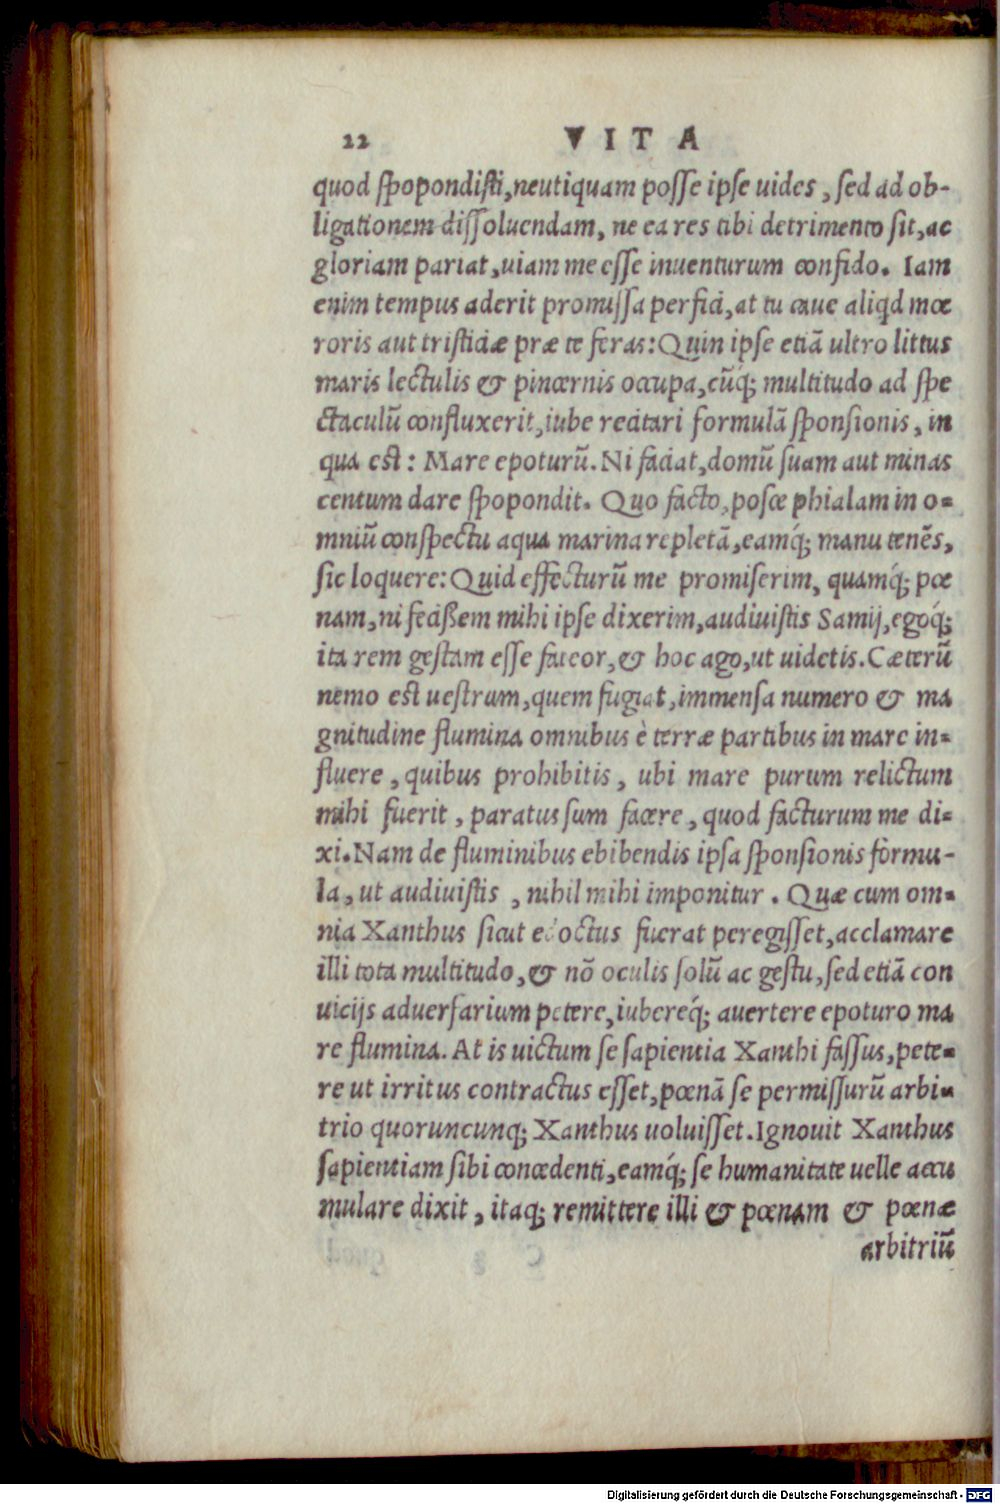 22 VITA
quod spopondisti, neutiquam posse ipse uides, sed ad ob-
ligationem dissoluendam, ne ea res tibi detrimento sit, ac
gloriam pariat, uiam me esse inuenturum confido. Iam
enim tempus aderit promissa perfici, at tu caue aliqd mœ
roris aut tristiciæ præ te feras: Quin ipse etiā ultro littus
maris lectulis & pincernis occupa, cūq; multitudo ad spe
ctaculū confluxerit, iube recitari formulā sponsionis, in
qua est: Mare epoturū. Ni faciat, domū suam aut minas
centum dare spopondit. Quo facto, posce phialam in o-
mniū conspectu aqua marina repletā, eamq́; manu tenēs,
sic loquere: Quid effecturū me promiserim, quamq́; pœ
nam, ni fecißem mihi ipse dixerim, audiuistis Samij, egoq́;
ita rem gestam esse fateor, & hoc ago, ut uidetis. Cæterū
nemo est uestrum, quem fugiat, immensa numero & ma
gnitudine flumina omnibus è terræ partibus in mare in-
fluere, quibus prohibitis, ubi mare purum relictum
mihi fuerit, paratus sum facere, quod facturum me di-
xi. Nam de fluminibus ebibendis ipsa sponsionis formu-
la, ut audiuistis, nihil mihi imponitur. Quæ cum om-
nia Xanthus sicut edoctus fuerat peregisset, acclamare
illi tota multitudo, & nō oculis solū ac gestu, sed etiā con
uicijs aduersarium petere, iubereq́; auertere epoturo ma
re flumina. At is uictum se sapientia Xanthi fassus, pete-
re ut irritus contractus esset, pœnā se permissurū arbi-
trio quoruncunq; Xanthus uoluisset. Ignouit Xanthus
sapientiam sibi concedenti, eamq́; se humanitate uelle accu
mulare dixit, itaq; remittere illi & pœnam & pœnæ
arbitriū
Digitalisierung gefördert durch die Deutsche Forschungsgemeinschaft - DFG